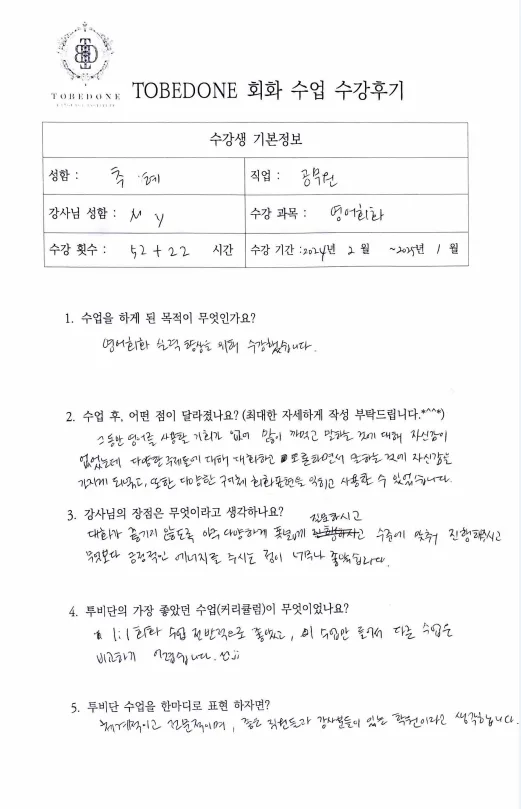 TOBEDONE
TOBEDONE 회화 수업 수강후기
수강생 기본정보
성함 : 추 혜
직업 : 공무원
강사님 성함 : M y
수강 과목 : 영어회화
수강 횟수 : 52 + 22 시간
수강 기간 : 2024년 2 월 ~2025년 1 월
1. 수업을 하게 된 목적이 무엇인가요?
영어회화 실력 향상을 위해 수강했습니다.
2. 수업 후, 어떤 점이 달라졌나요? (최대한 자세하게 작성 부탁드립니다.*^^*)
그동안 영어를 사용할 기회가 없어 많이 까먹고 말하는 것에 대해 자신감이
없었는데 다양한 주제들에 대해 대화하고 토론하면서 말하는 것에 자신감을
가지게 되었고, 또한 다양한 영어 회화표현을 익히고 사용할 수 있었습니다.
3. 강사님의 장점은 무엇이라고 생각하나요?
질문하시고
대화가 끊기지 않도록 아주 다양하게 폭넓게 수준에 맞추어 진행해주시고
무엇보다 긍정적인 에너지를 주시는 점이 너무나 좋았습니다.
4. 투비단의 가장 좋았던 수업(커리큘럼)이 무엇이었나요?
1:1 회화 수업 전반적으로 좋았고, 이 수업만 들어서 다른 수업은
비교하기 어렵습니다. ㅠㅠ
5. 투비단 수업을 한마디로 표현 하자면?
체계적이고 전문적이며, 좋은 직원들과 강사분들이 있는 학원이라고 생각합니다.